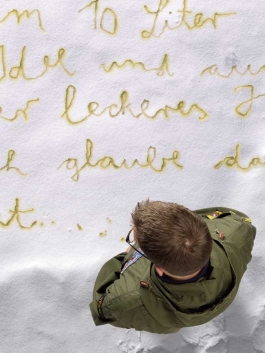 m 10 Liter
Idee und au
er leckeres
ch glaube da
t...